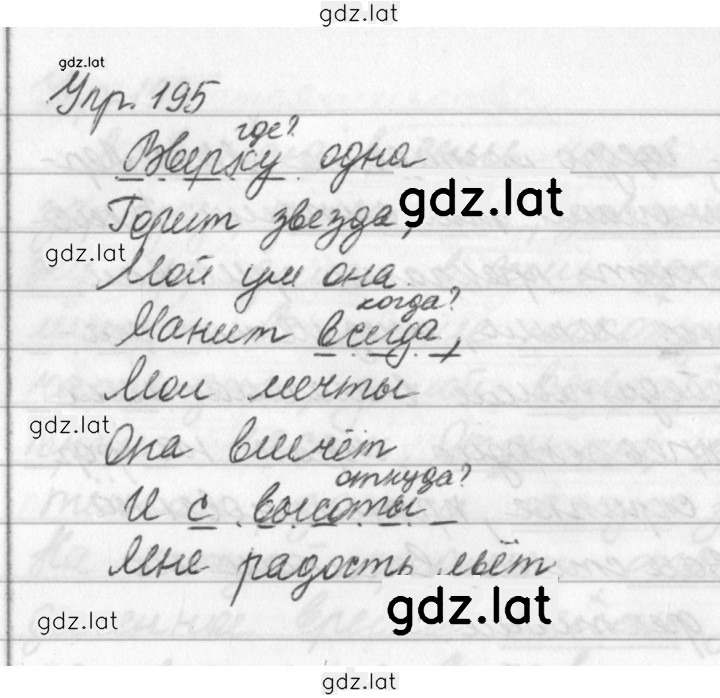 gdz.lat
gdz.lat
Упр. 195
где?
Вверху одна
gdz.lat
Горит звезда,
gdz.lat
Мой ум она
когда?
Манит всегда,
Мои мечты
gdz.lat
Она влечёт
откуда?
И с высоты
Мне радость льёт
gdz.lat
gdz.lat
gdz.lat